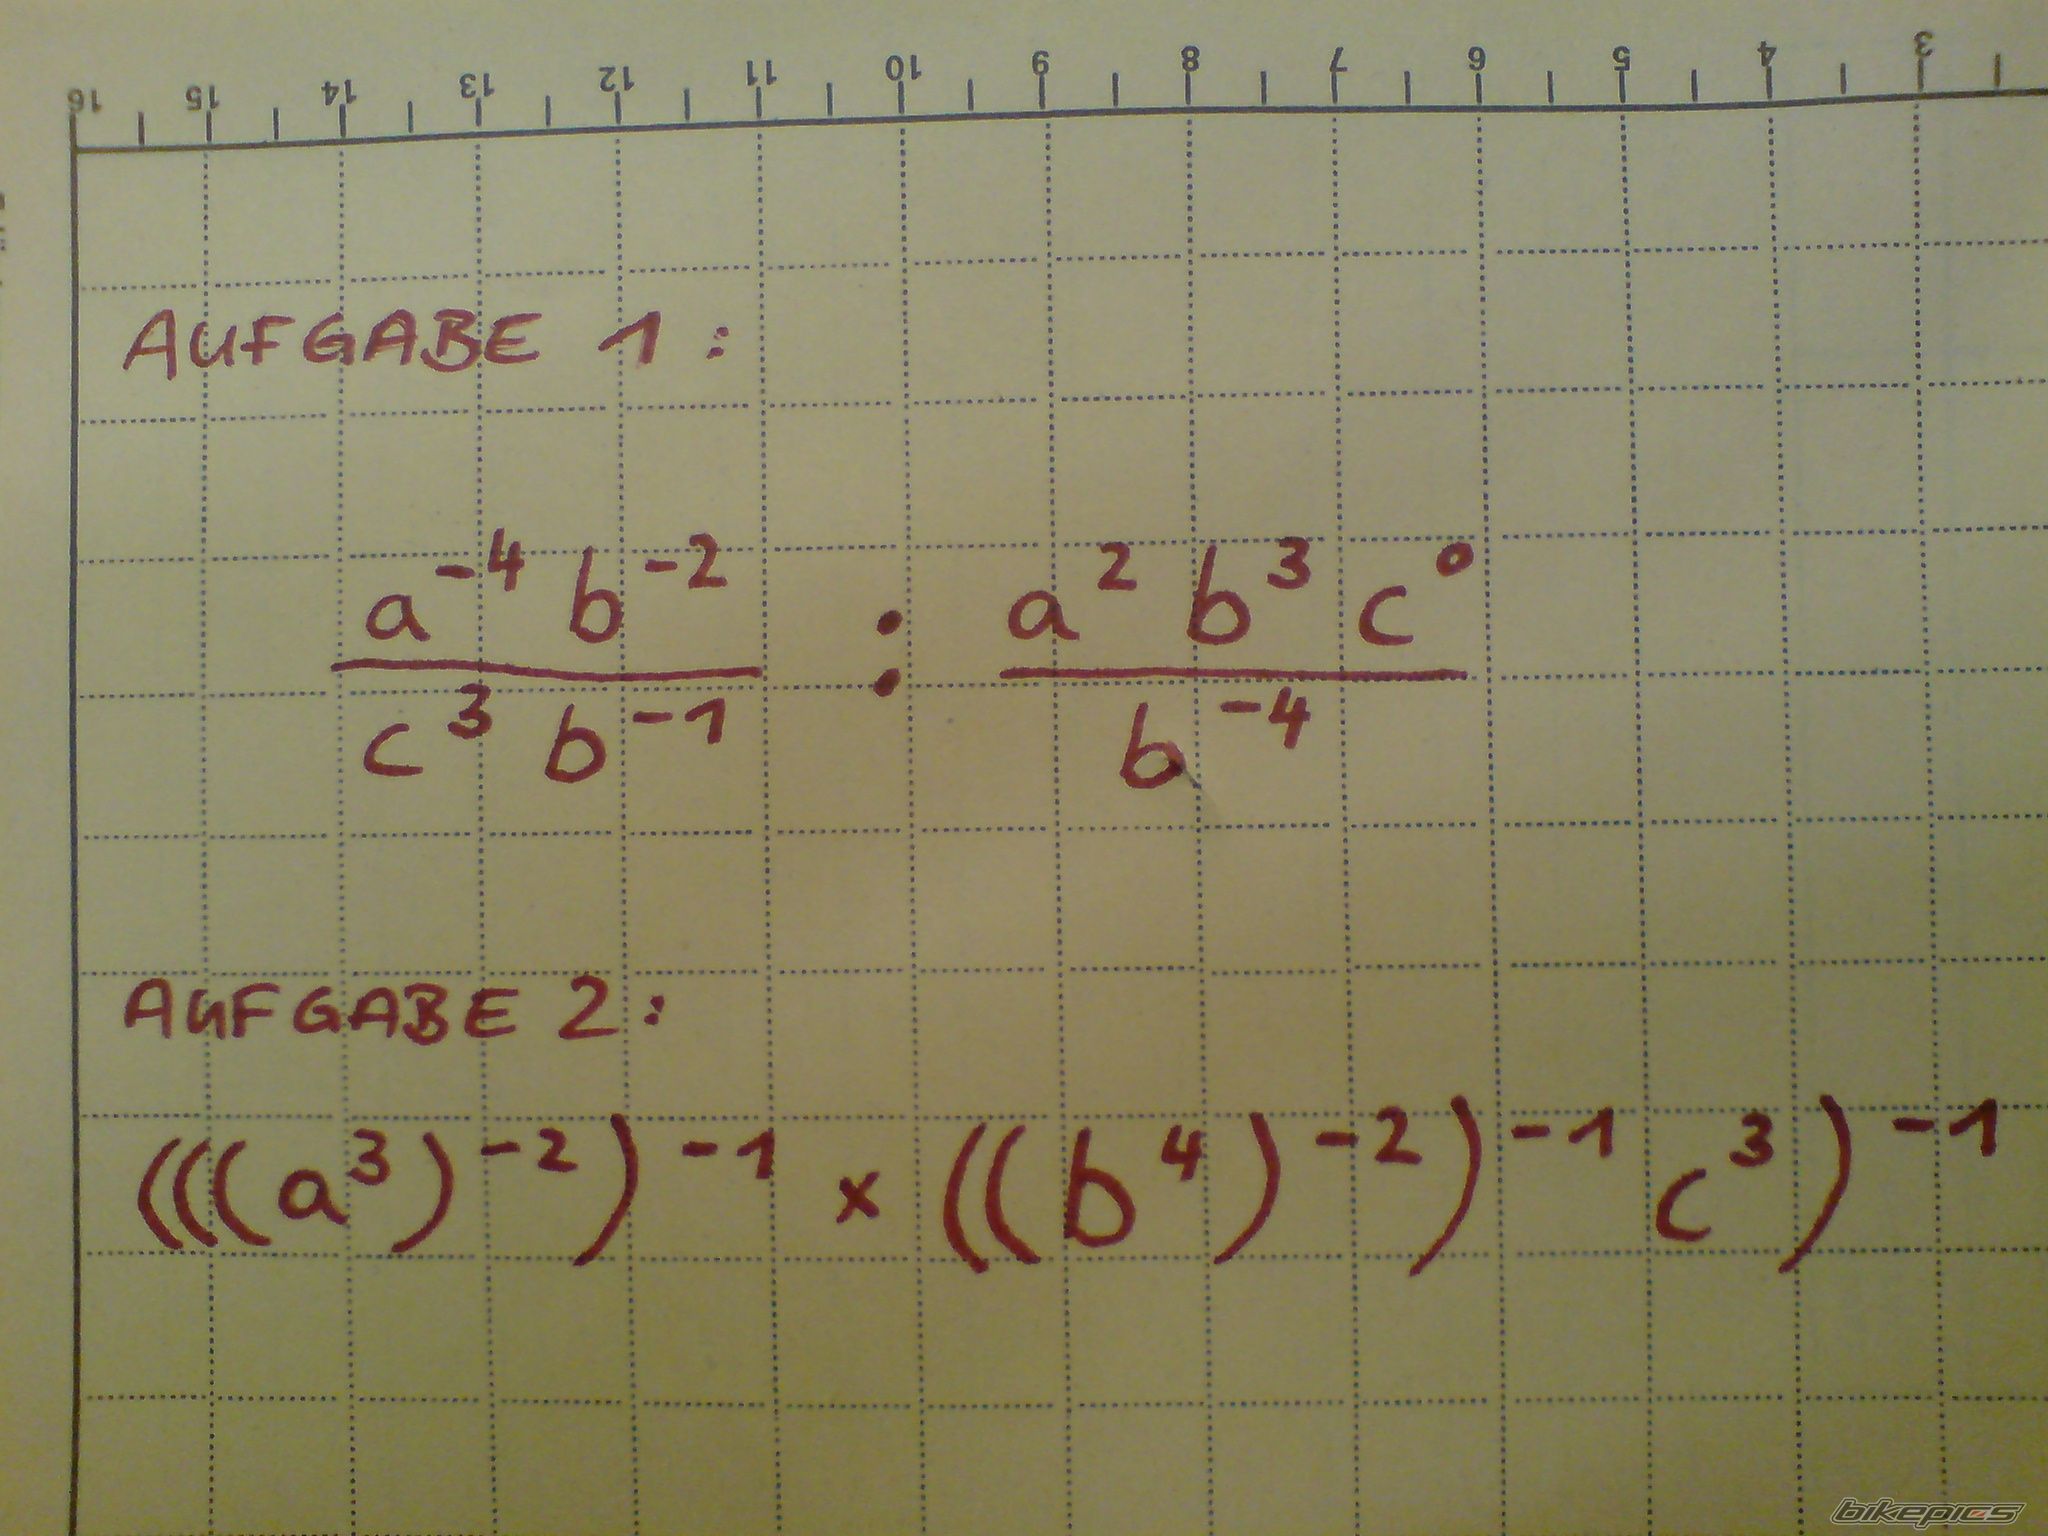 16 15 14 13 12 11 10 9 8 7 6 5 4 3
AUFGABE 1:
a⁻⁴ b⁻² : a² b³ c⁰
c³ b⁻¹ b⁻⁴
AUFGABE 2:
(((a³)⁻²)⁻¹ × ((b⁴)⁻²)⁻¹ c³)⁻¹
bikepics